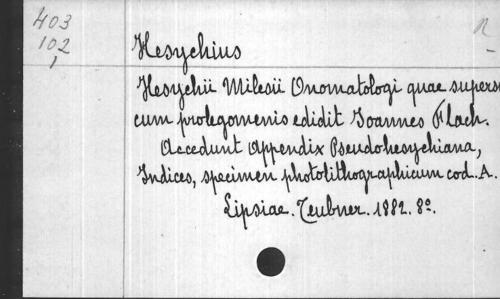 403
102
1
R
Hesychius
Hesychii Milesii Onomatologi quae supers
cum prolegomenis edidit Joannes Flach.
Accedunt Appendix Pseudohesychiana,
Indices, specimen photolithographicum cod. A.
Lipsiae. Teubner. 1882. 8°.